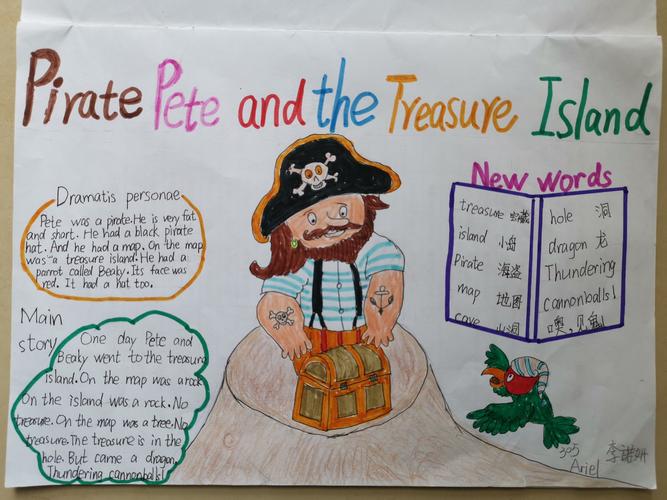 Pirate Pete and the Treasure Island
Dramatis personae
Pete was a pirate. He is very fat
and short. He had a black pirate
hat. And he had a map. On the map
was a treasure island. He had a
parrot called Beaky. Its face was
red. It had a hat too.
Main
story
One day Pete and
Beaky went to the treasure
island. On the map was a rock
On the island was a rock. No
treasure. On the map was a tree. No
treasure. The treasure is in the
hole. But came a dragon
Thundering cannonballs!
New words
treasure 宝藏
island 小岛
Pirate 海盗
map 地图
cave 山洞
hole 洞
dragon 龙
Thundering
cannonballs!
噢,见鬼!
305 李诺妍
Ariel